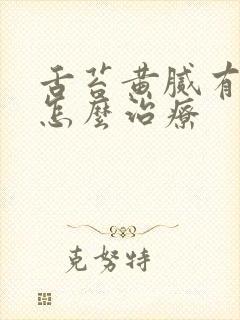 舌苔黄腻有
怎麼治療
克努特